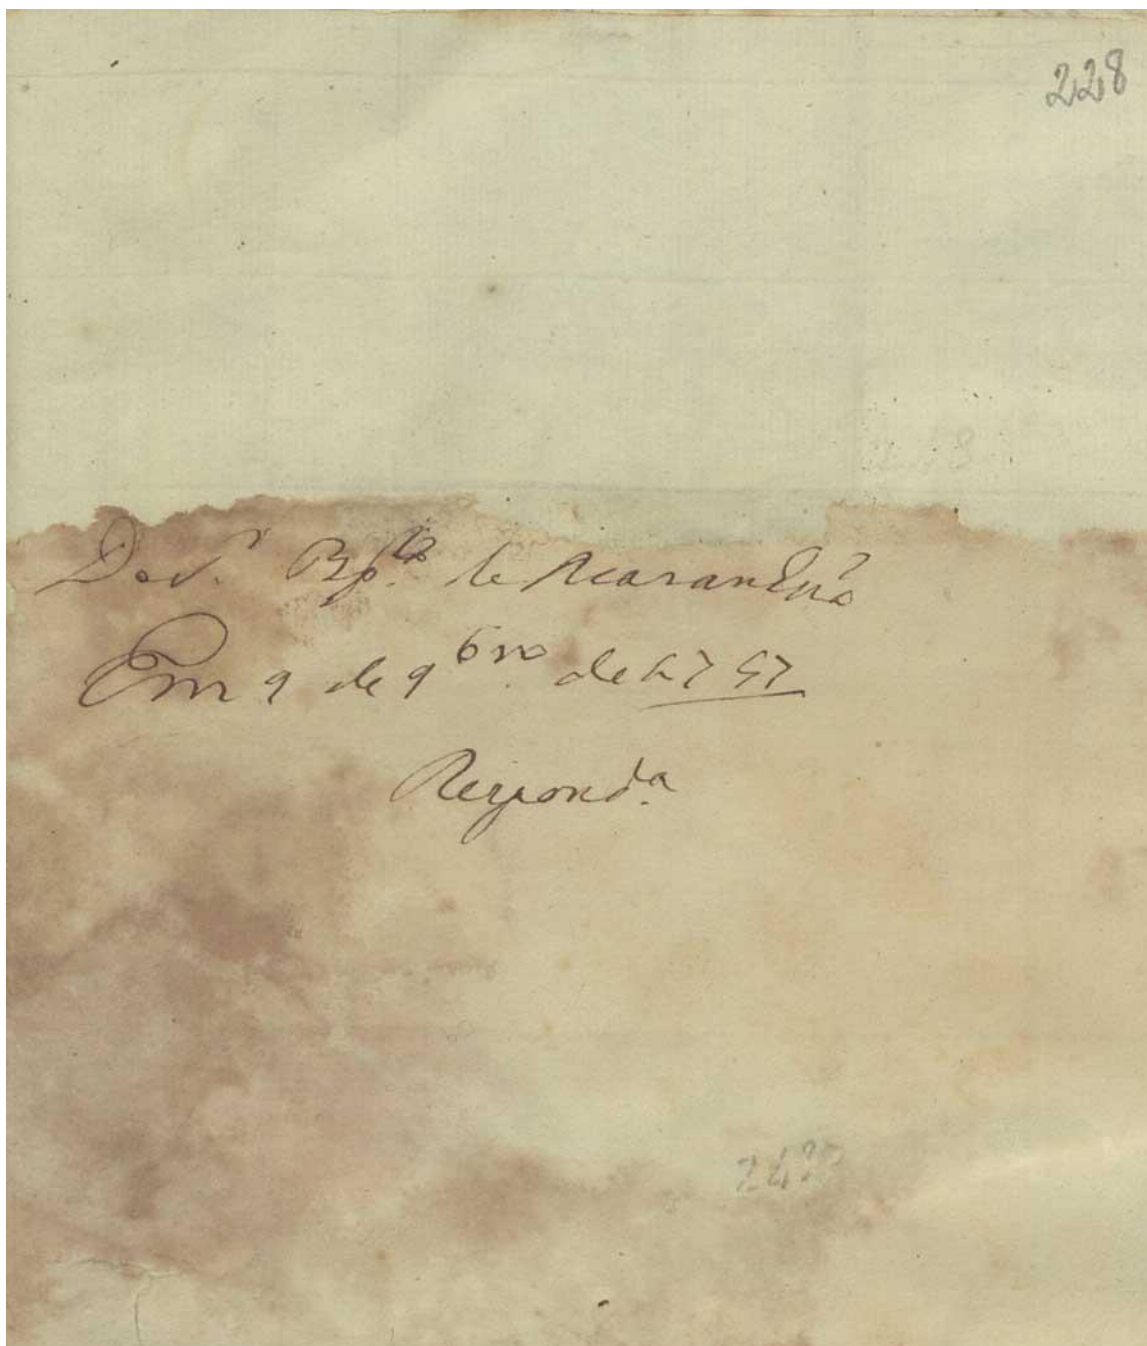 228
Do S.r Bp.o de Maranhão
Em 9 de 9bro de 1757
Respond.a